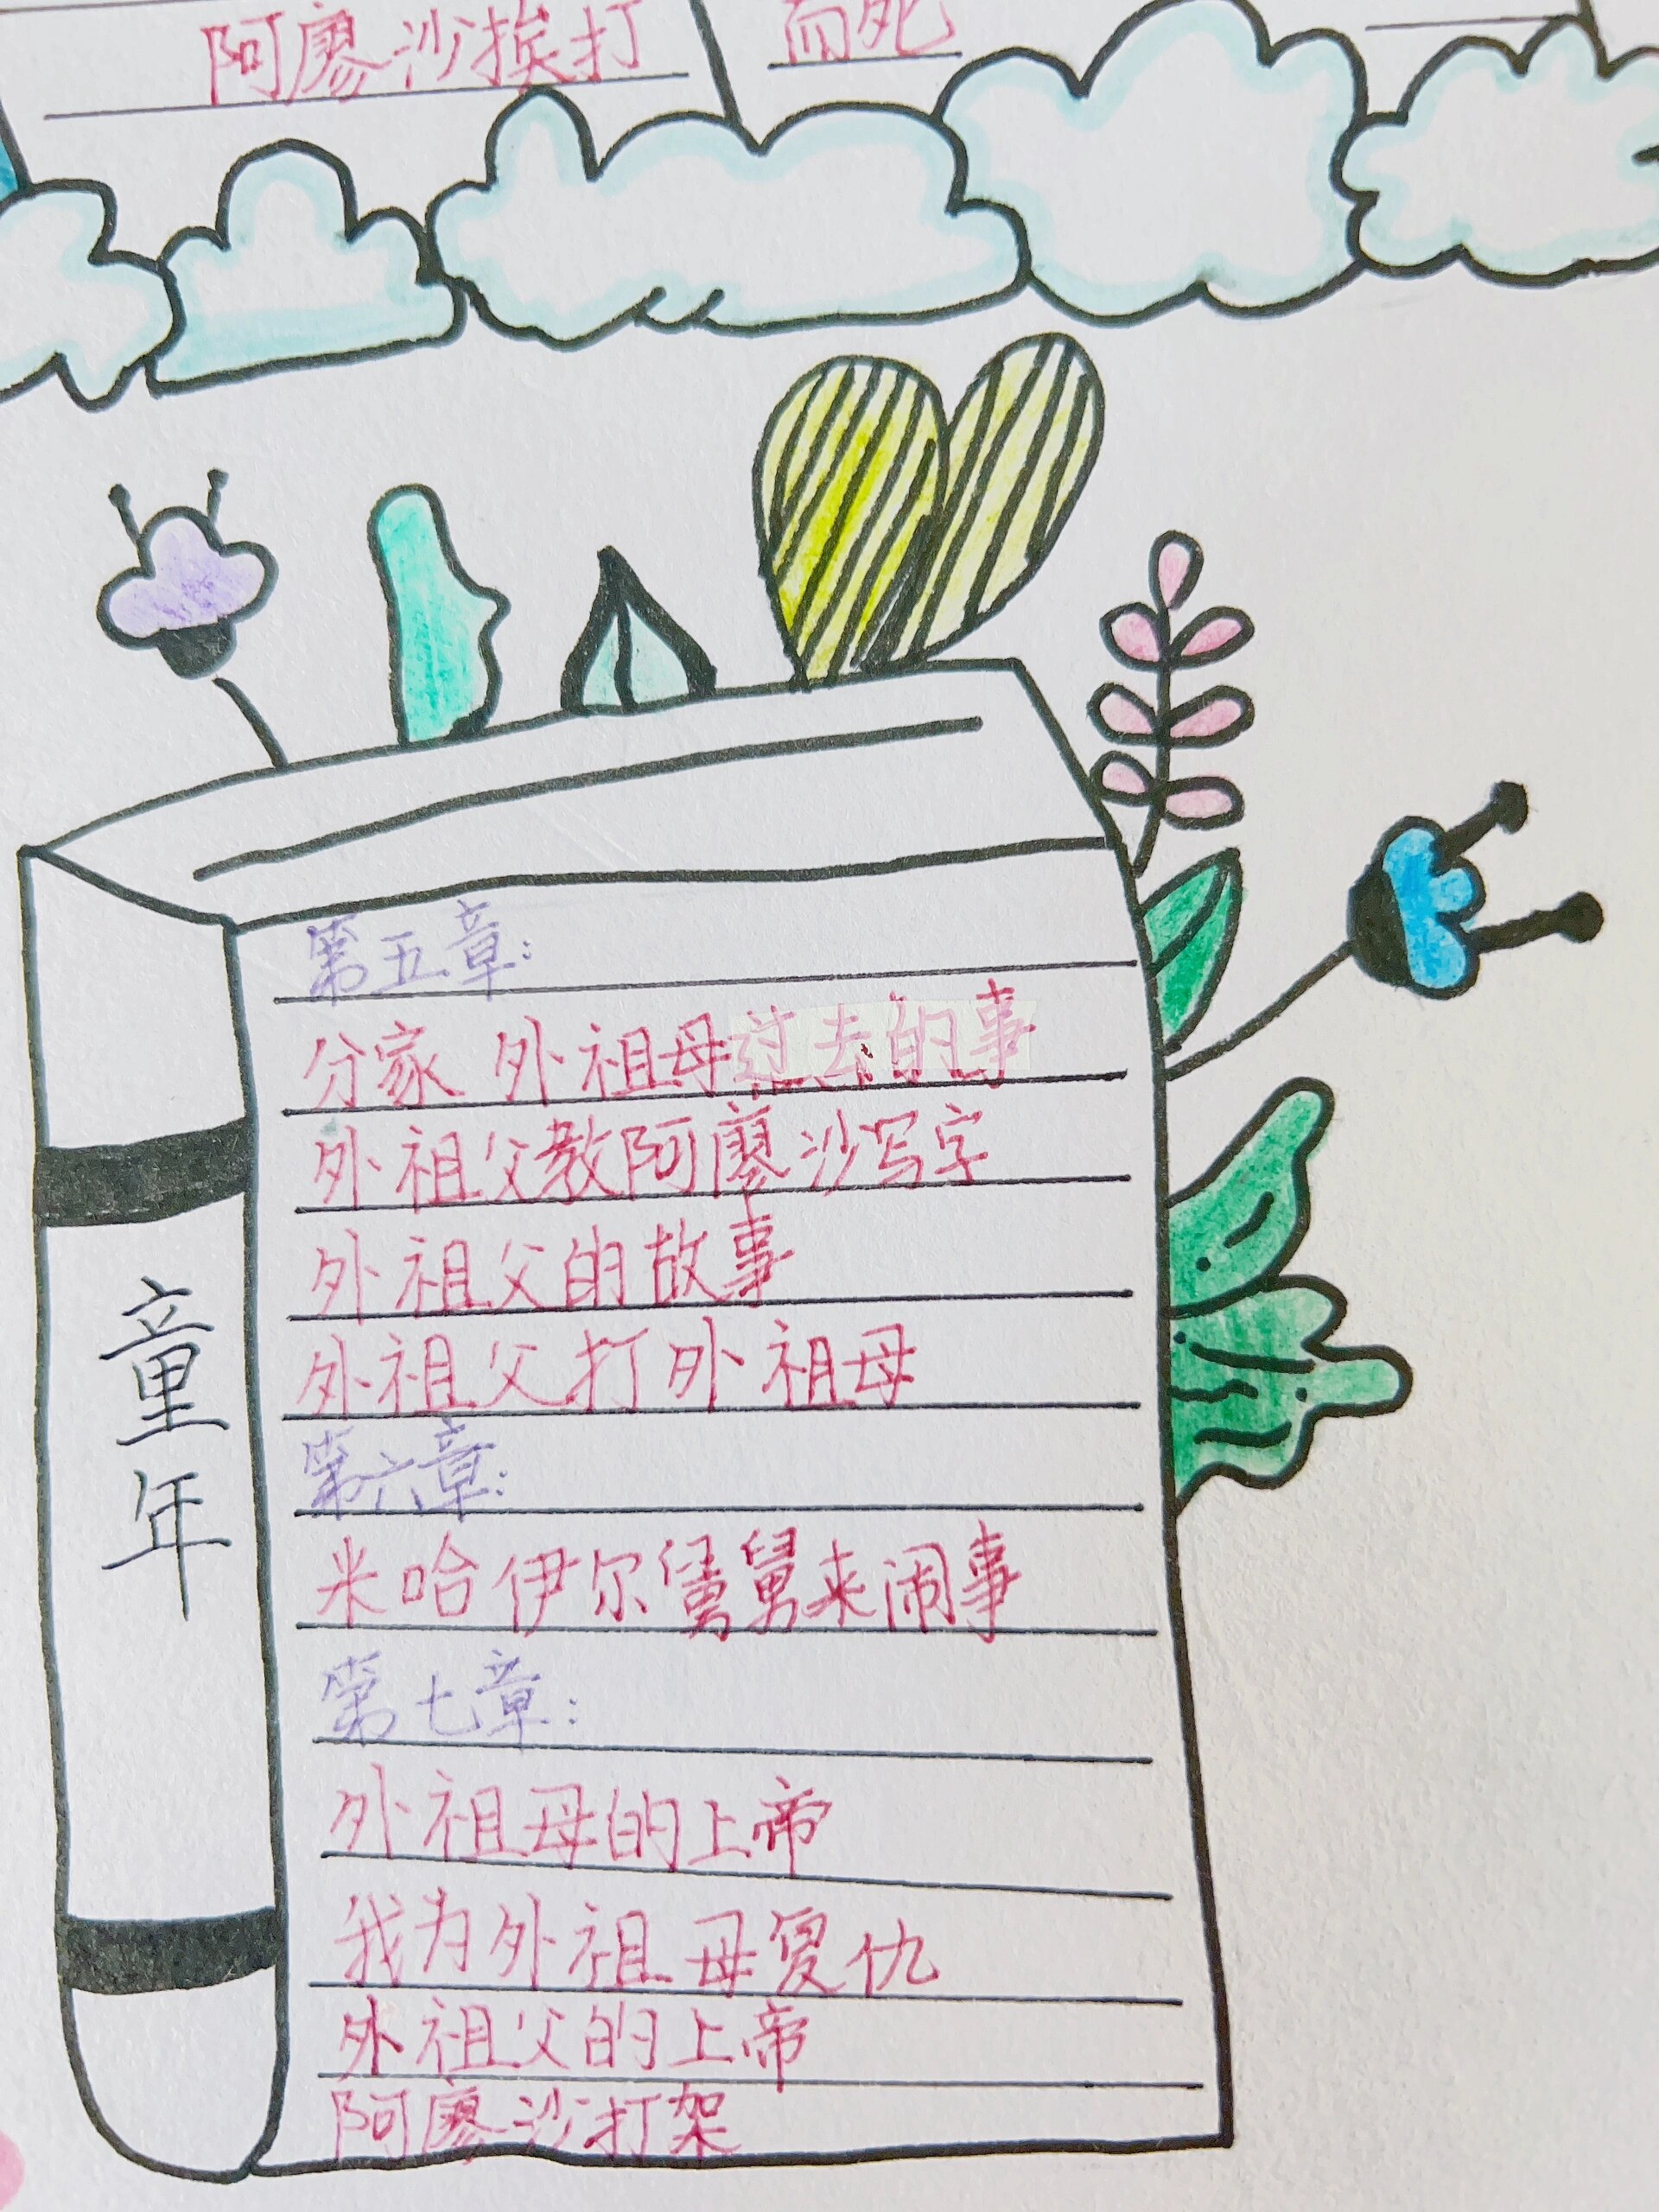 阿廖沙挨打
而死
第五章:
分家 外祖母过去的事
外祖父教阿廖沙写字
外祖父的故事
外祖父打外祖母
第六章:
米哈伊尔舅舅来闹事
第七章:
外祖母的上帝
我为外祖母复仇
外祖父的上帝
阿廖沙打架
童年